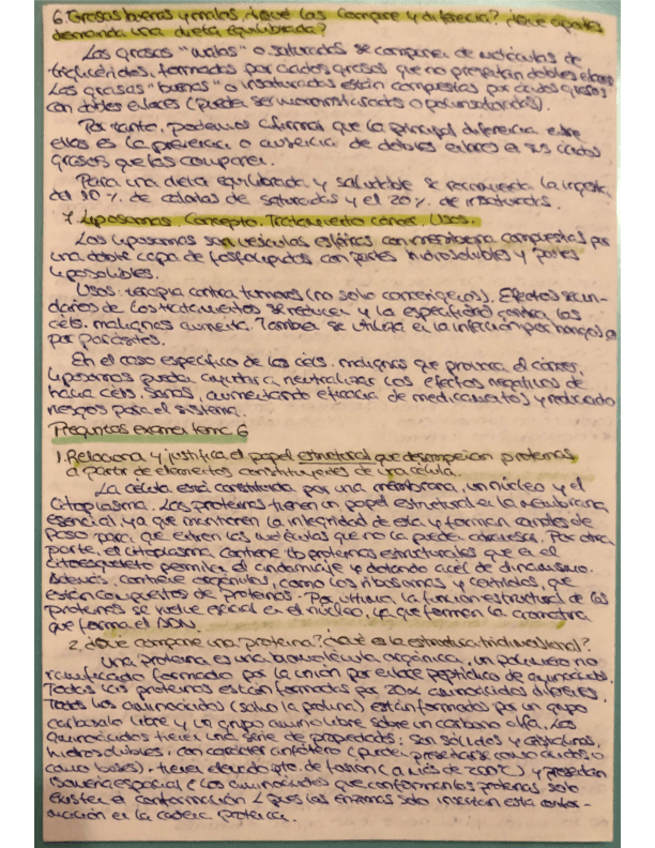 6. Grasas buenas y malas, ¿Qué las compone y diferencia? ¿Qué aportes
demanda una dieta equilibrada?
Las grasas "malas" o saturadas se componen de moléculas de
triglicéridos, formados por ácidos grasos que no presentan dobles enlaces
Las grasas "buenas" o insaturadas están compuestas por ácidos grasos
con dobles enlaces (pueden ser monoinsaturados o poliinsaturados).
Por tanto, podemos afirmar que la principal diferencia entre
ellas es la presencia o ausencia de dobles enlaces en sus ácidos
grasos que las componen.
Para una dieta equilibrada y saludable se recomienda la ingesta
del 10 % de calorías de saturadas y el 20 % de insaturadas.
7. Liposomas. Concepto. Tratamiento cáncer. Usos.
Los liposomas son vesículas esféricas con membrana compuestas por
una doble capa de fosfolípidos con partes hidrosolubles y partes
liposolubles.
Usos: terapia contra tumores (no solo cancerígenos). Efectos secun-
darios de los tratamientos se reducen y la especificidad contra las
céls. malignas aumenta. También se utiliza en la infección por hongos o
por parásitos.
En el caso específico de las céls. malignas que provocan el cáncer,
liposomas pueden ayudar a neutralizar los efectos negativos de
hacia céls. sanas, aumentando eficacia de medicamentos y reduciendo
riesgos para el sistema.
Preguntas examen tema 6
1. Relaciona y justifica el papel estructural que desempeñan proteínas
a partir de elementos constituyentes de una célula.
La célula está constituida por una membrana, un núcleo y el
citoplasma. Las proteínas tienen un papel estructural en la membrana
esencial, ya que mantienen la integridad de esta y forman canales de
paso para que entren las moléculas que no la pueden atravesar. Por otra
parte, el citoplasma contiene tb proteínas estructurales que en el
citoesqueleto permiten el andamiaje y dotando a cél de dinamismo.
Además, contiene orgánulos, como los ribosomas y centriolos, que
están compuestos de proteínas. Por último, la función estructural de las
proteínas se vuelve esencial en el núcleo, ya que forman la cromatina
que forma el ADN.
2. ¿Qué compone una proteína? ¿Qué es la estructura tridimensional?
Una proteína es una biomolécula orgánica, un polímero no
ramificado formado por la unión por enlace peptídico de aminoácidos.
Todas las proteínas están formadas por 20 aminoácidos diferentes.
Todos los aminoácidos (salvo la prolina) están formados por un grupo
carboxilo libre y un grupo amino libre sobre un carbono alfa. Los
aminoácidos tienen una serie de propiedades: son sólidos y cristalinos,
hidrosolubles, con carácter anfótero (pueden presentarse como ácidos o
como bases), tienen elevado pto. de fusión (a más de 200ºC) y presentan
isomería espacial